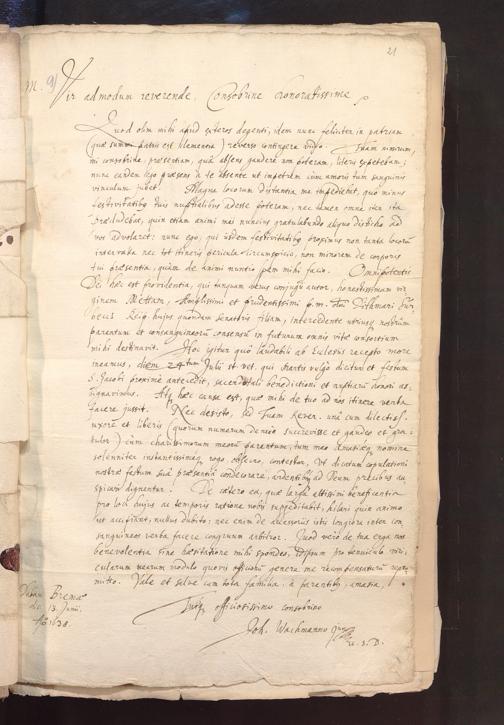 21
M. 9)
Vir admodum reverende, Consobrine honoratissime
Quod olim mihi apud exteros degenti, idem nunc feliciter in patriam
(quae summi patris est clementia) reverso contingere video. Etiam nimirum,
mi consobrine, praesentiam, qua absens gaudere non poteram, literis expetebam;
nunc eandem licet praesens a te absente ut impetrem cum amoris tum sanguinis
vinculum jubet. Magna locorum distantia me impediebat, quo minus
festivitatibus tuis nuptialibus adesse poteram, nec tamen omne iter ita
praecludebat, quin etiam animi mei nuncius gratulabundo aliquo disticho ad
vos advolaret: nunc ego, qui iisdem festivitatibus proximus non tanta locorum
intervalla nec tot itineris pericula circumspicio, non minorem de corporis
tui praesentia, quam de animi nuntio spem mihi facio. Omnipotentis
Dei haec est providentia, qui tanquam verus conjugii autor, honestissimam vir-
ginem Mettam, Amplissimi et prudentissimi p.m.
Reip. hujus quondam senatoris filiam, intercedente utriusque nostrum
parentum et consanguineorum consensu in futuram omnis vitae consortium
mihi destinavit. Hoc igitur quo laudabili ab Ecclesia recepto more
ineamus, diem 24tum Julii st. vet. qui chartis vulgo dicitur et festum
S. Jacobi proxime antecedit, sacerdotali benedictioni et nuptiarum honori as-
signavimus. Atque haec causa est, quae mihi de tuo ad nos itinere verba
facere jussit. Nec desisto, ad Tuam Rever. una cum dilectiss.
uxore et liberis (quorum numerum denuo succrevisse et gaudeo et gra-
tulor) cum charissimorum meorum parentum, tum meo amatissimae nomine
solenniter instantissimeque rogo, obsecro, contestor, ut dicatum copulationi
nostrae festum sua praesentia condecorare, ardentibusque ad Deum precibus au-
spicari dignentur. De caetero ea, quae larga altissimi beneficentia
pro loci hujus ac temporis ratione nobis suppeditabit, hilari quin animo
ut accipiant, nullus dubito; nec enim de accessoriis istis longiora inter con-
sanguineos verba facere congruum arbitror. Quod vero de tua erga nos
benevolentia sine haesitatione mihi spondeo, id ipsum pro tenuiculo viri-
cularum mearum modulo quovis officiorum genere me recompensaturum repro-
mitto. Vale et salve cum tota familia, a parentibus, amasia,
Datum Bremae
d. 13. Junii.
Ao 1638.
Tuoque officiosissimo consobrino
Joh. Wachmanno
u. J. D.